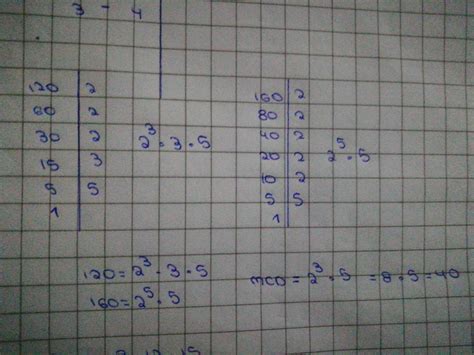 3 - 4
120 | 2
60 | 2
30 | 2
15 | 3
5 | 5
1
2³ · 3 · 5
160 | 2
80 | 2
40 | 2
20 | 2
10 | 2
5 | 5
1
2⁵ · 5
120 = 2³ · 3 · 5
160 = 2⁵ · 5
mcD = 2³ · 5 = 8 · 5 = 40